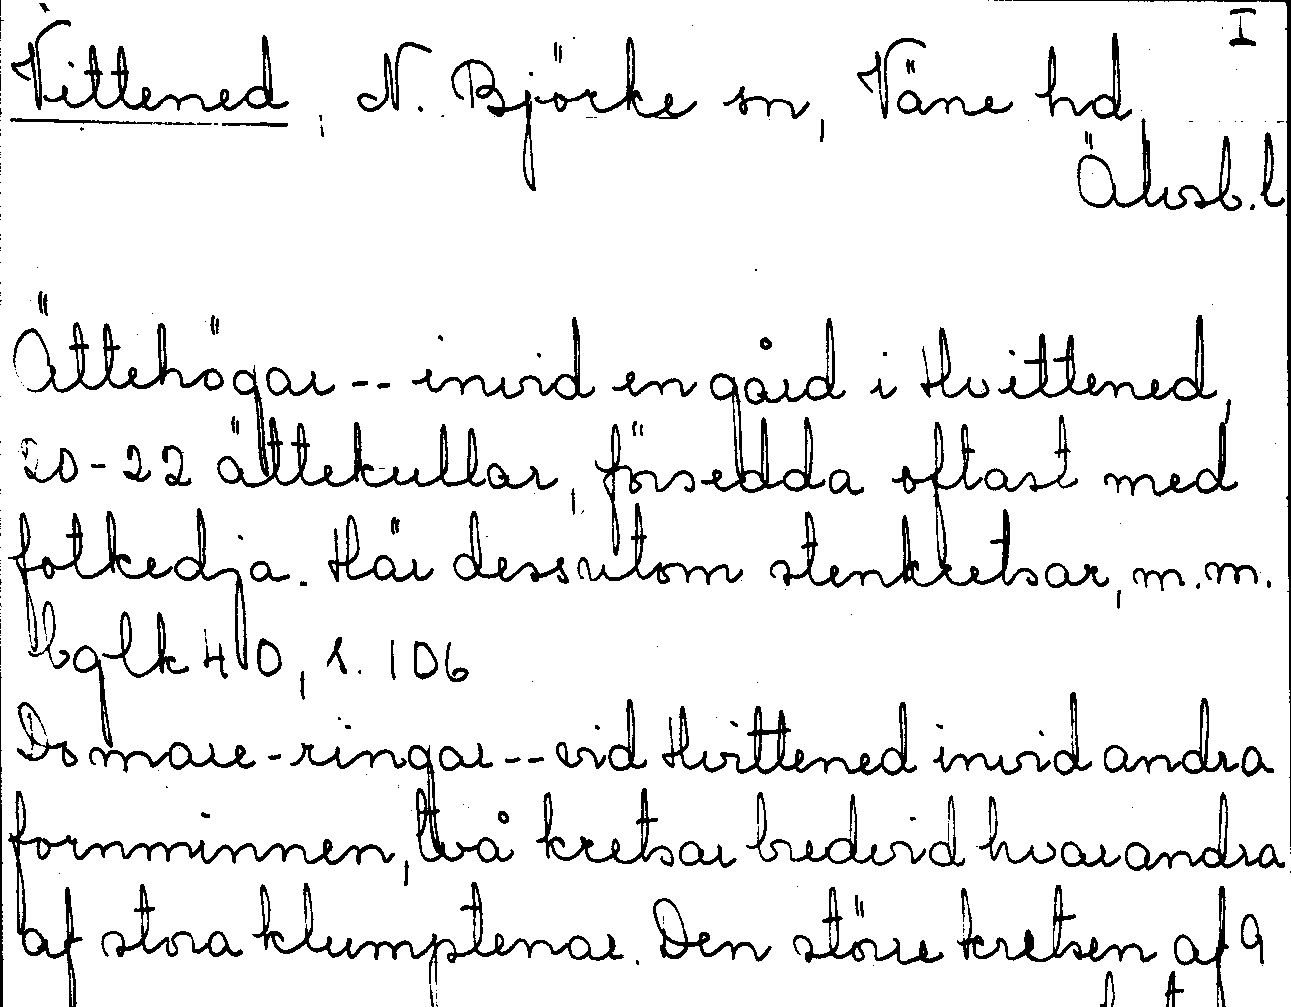 I
Vittened, N. Björke sn, Väne hd,
Älvsb. l
Ättehögar -- invid en gård i Hvittened,
20-22 ättekullar, försedda oftast med
fotkedja. Här dessutom stenkretsar, m.m.
s. 106
Domare-ringar -- vid Hvittened invid andra
fornminnen, två kretsar bredvid hvarandra
af stora klumpstenar. Den större kretsen af 9